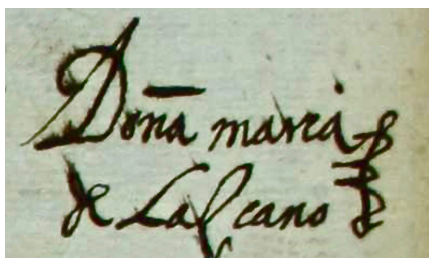 Doña maria
de Lascano